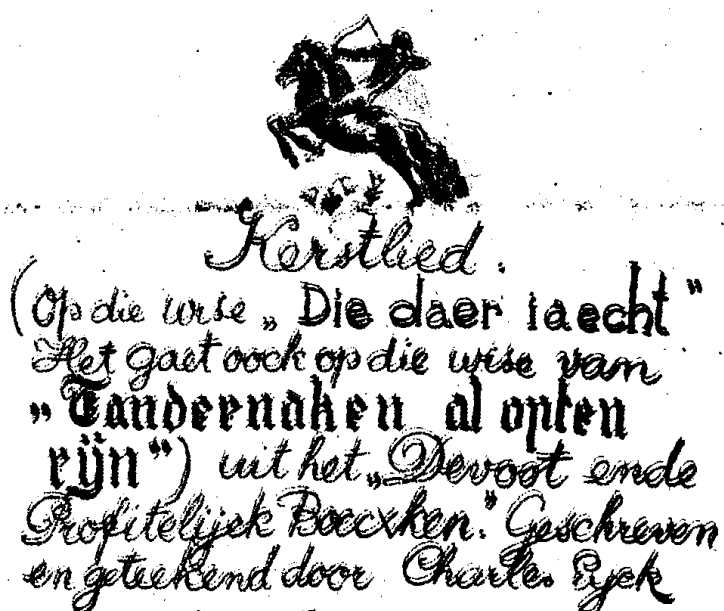 Kerstlied.
(Op die wise „Die daer iaecht"
Het gaet oock op die wise van
„Tandernaken al opten
rijn") uit het „Devoot ende
Profitelijck Boecxken." Geschreven
en geteekend door Charles Eyck